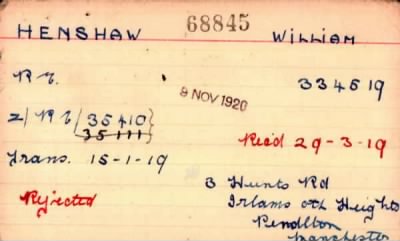 68845
HENSHAW WILLIAM
R E. 334519
9 NOV 1920
2/ R E (35410)
35111
Rec'd 29-3-19
Trans. 15-1-19
3 Hunts Rd
Rejected
Irlams oth Heights
Pendlton
Manchester